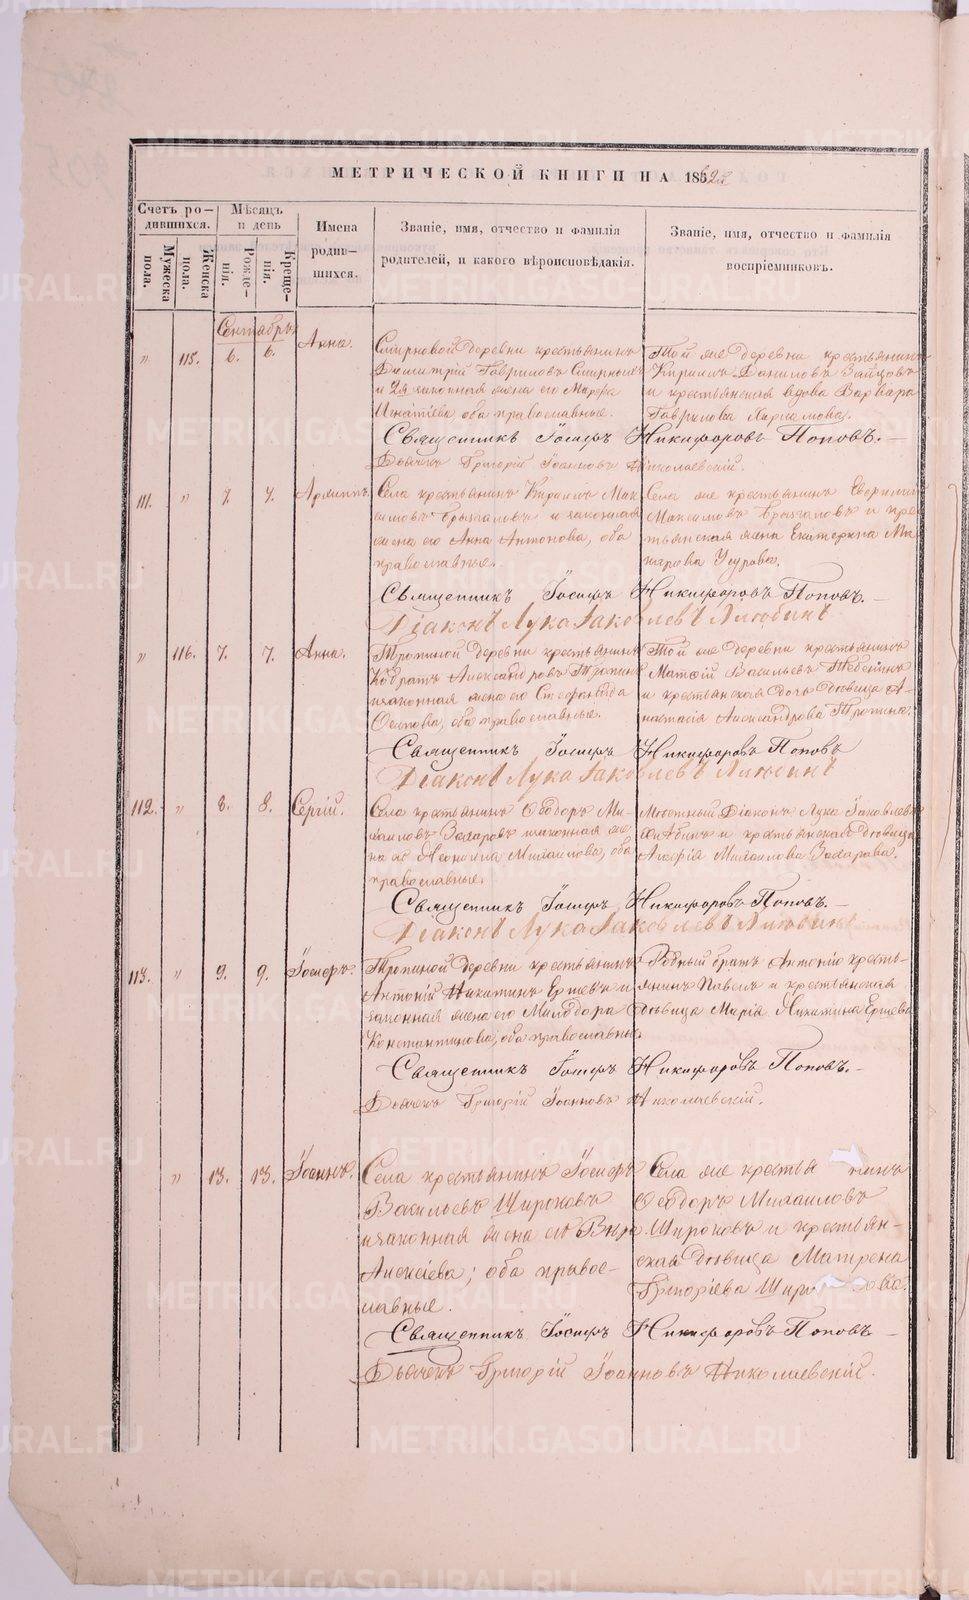 МЕТРИЧЕСКОЙ КНИГИ НА 1862й
Счетъ ро-
дившихся.
Мѣсяцъ
и день
Имена
родив-
шихся.
Званіе, имя, отчество и фамилія
родителей, и какого вѣроисповѣданія.
Званіе, имя, отчество и фамилія
воспріемниковъ.
Мужеска
пола.
Женска
пола.
Рожде-
нія.
Креще-
нія.
Сентябрь
" 115. 6. 6. Анна.
Смирновой деревни крестьянинъ
Димитрій Гавриловъ Смирновъ
и законная жена его Марѳа
Игнатіева, оба православные.
Той же деревни крестьянинъ
Кириллъ Даниловъ Зайцовъ
и крестьянская вдова Варвара
Гаврилова
Священникъ Іосифъ Никифоровъ Поповъ.
Дьячекъ Григорій Іоанновъ Николаевскій.
111. " 7. 7. Архиппъ.
Села крестьянинъ Кириллъ Мак-
симовъ Брызгаловъ и законная
жена его Анна Антонова, оба
православные.
Села же крестьянинъ
Максимовъ Брызгаловъ и кре-
стьянская жена Екатерина Ма-
карова
Священникъ Іосифъ Никифоровъ Поповъ.
Діаконъ Лука Іаковлевъ Любинъ
" 116. 7. 7. Анна.
Тропиной деревни крестьянинъ
Кодратъ Александровъ Тропинъ
и законная жена его Стефанида
Осипова, оба православные.
Той же деревни крестьянинъ
Матѳій Васильевъ
и крестьянская дочь дѣвица А-
настасія Александрова Тропина.
Священникъ Іосифъ Никифоровъ Поповъ
Діаконъ Лука Іаковлевъ Любинъ
112. " 8. 8. Сергій.
Села крестьянинъ Ѳеодоръ Ми-
хаиловъ Захаровъ и законная же-
на его Леонилла Михаилова, оба
православные.
Мѣстный Діаконъ Лука Іаковлевъ
Любинъ и крестьянская дѣвица
Михаилова Захарова.
Священникъ Іосифъ Никифоровъ Поповъ.
Діаконъ Лука Іаковлевъ Любинъ
113. " 9. 9. Іосифъ.
Тропиной деревни крестьянинъ
Антоній Никитинъ Ершевъ и
законная жена его Милодора
Константинова, оба православные.
Родный братъ Антонію кресть-
янинъ Павелъ и крестьянская
дѣвица Марія Никитина Ершева
Священникъ Іосифъ Никифоровъ Поповъ.
Дьячекъ Григорій Іоанновъ Николаевскій.
" 13. 13. Іоаннъ.
Села крестьянинъ Іосифъ
Васильевъ Широковъ
и законная жена его Вѣра
Алексіева; оба право-
славные.
Села же крестья нинъ
Ѳеодоръ Михаиловъ
Широковъ и крестьян-
ская дѣвица Матрена
Григоріева
Священникъ Іосифъ Никифоровъ Поповъ
Дьячекъ Григорій Іоанновъ Николаевскій.
METRIKI.GASO-URAL.RU